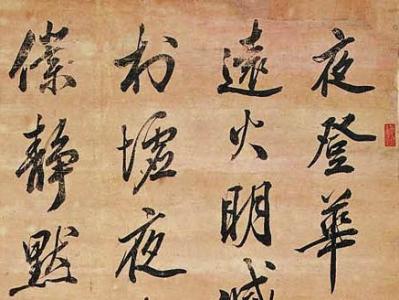 夜登華
遠火明滅
村墟夜
僕靜默